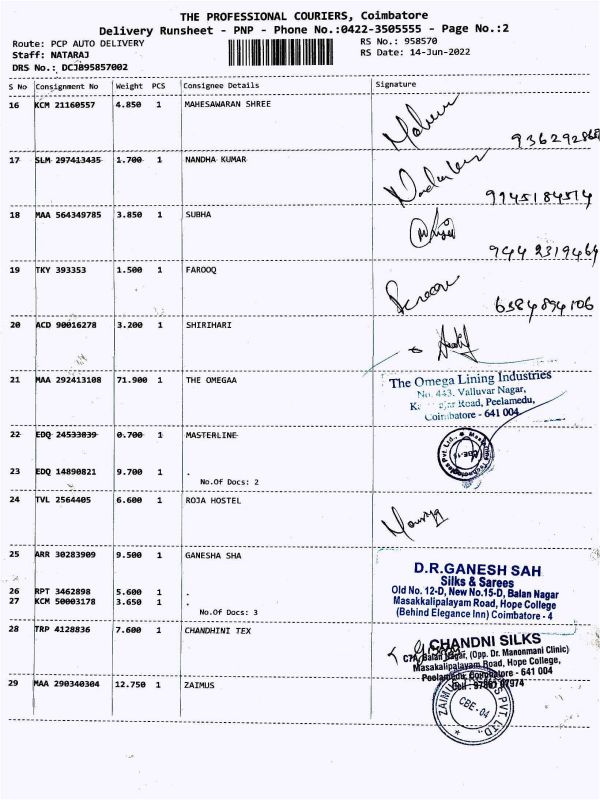 THE PROFESSIONAL COURIERS, Coimbatore
Delivery Runsheet - PNP - Phone No.:0422-3505555 - Page No.:2
Route: PCP AUTO DELIVERY
RS No.: 958570
Staff: NATARAJ
RS Date: 14-Jun-2022
DRS No.: DCJB95857002
S No Consignment No Weight PCS Consignee Details Signature
16 KCM 21160557 4.850 1 MAHESAWARAN SHREE
17 SLM 297413435 1.700 1 NANDHA KUMAR
9945184514
18 MAA 564349785 3.850 1 SUBHA
944 2319464
19 TKY 393353 1.500 1 FAROOQ
6384894106
20 ACD 90016278 3.200 1 SHIRIHARI
21 MAA 292413108 71.900 1 THE OMEGAA
The Omega Lining Industries
No. 443, Valluvar Nagar,
Road, Peelamedu,
Coimbatore - 641 004
22 EDQ 24533039 0.700 1 MASTERLINE
23 EDQ 14890821 9.700 1 .
No.Of Docs: 2
24 TVL 2564405 6.600 1 ROJA HOSTEL
25 ARR 30283909 9.500 1 GANESHA SHA
D.R.GANESH SAH
Silks & Sarees
Old No. 12-D, New No.15-D, Balan Nagar
Masakkalipalayam Road, Hope College
(Behind Elegance Inn) Coimbatore - 4
26 RPT 3462898 5.600 1 .
27 KCM 50003178 3.650 1 .
No.Of Docs: 3
28 TRP 4128836 7.600 1 CHANDHINI TEX
CHANDNI SILKS
C7A, Balan Nagar, (Opp. Dr. Manonmani Clinic)
Masakalipalayam Road, Hope College,
Peelamedu, Coimbatore - 641 004
29 MAA 290340304 12.750 1 ZAIMUS
ZAIMUS PVT. LTD.,
CBE - 04